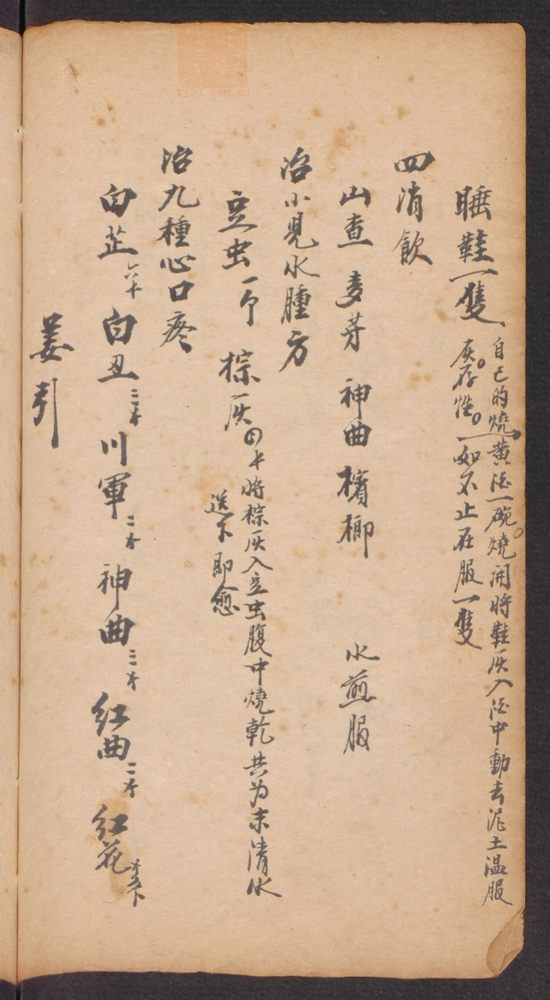 睡鞋一隻 自己的燒黃酒一碗燒開時鞋灰入酒中動去泥土温服
灰存性。如不止在服一隻
四消飲
山查 麦芽 神曲 檳榔 水煎服
治小児水腫方
豆虫一个 棕灰四 将棕灰入豆虫腹中燒乾共为末清水
送下即愈
治九種心口疼
白芷 白丑三 川軍二 神曲三 紅曲二 紅花
姜引